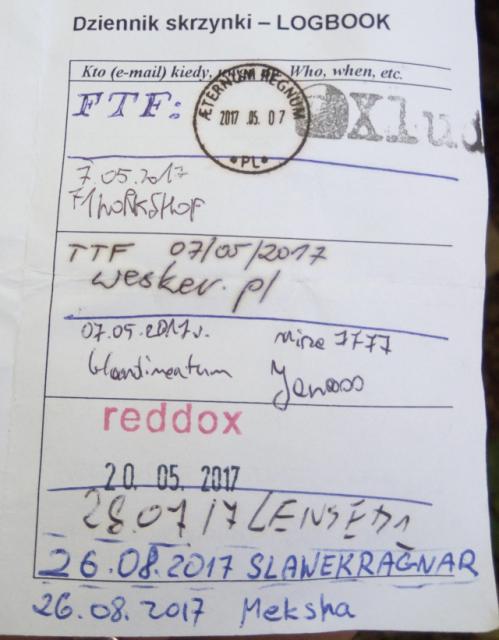 Dziennik skrzynki – LOGBOOK
Kto (e-mail) kiedy, Who, when, etc.
FTF:
ÆTERNUM REGNUM
2017 .05. 07
•PL•
7.05.2017
F1WORKSHOP
TTF 07/05/2017
wesker.pl
07.05.2017r.
7777
reddox
20. 05. 2017
28.07/17
26.08.2017 SLAWEKRAGNAR
26.08.2017 Meksha